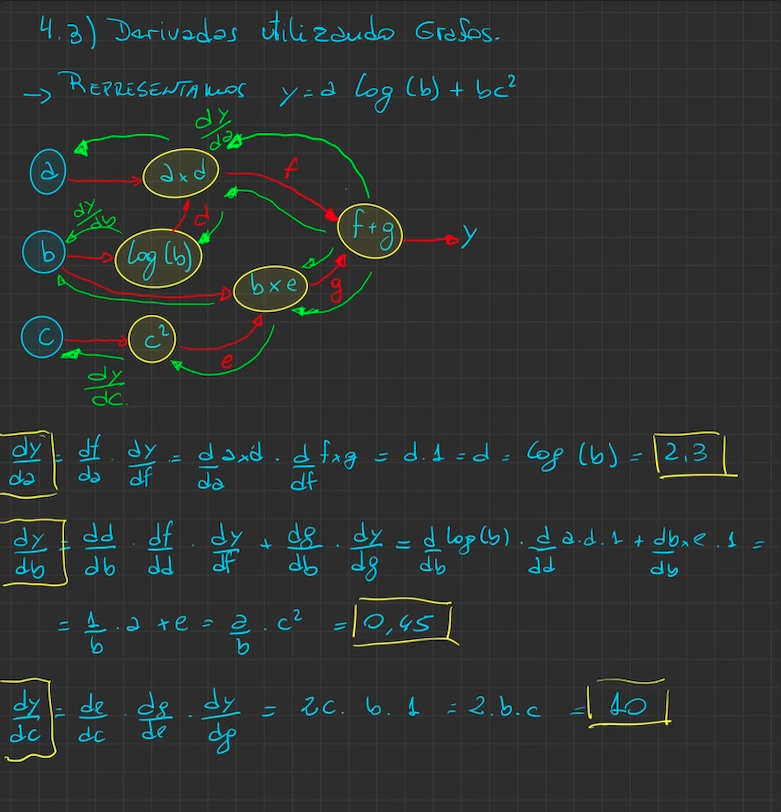 4.3) Derivados utilizando Grafos.
→ REPRESENTAMOS y = a log (b) + bc²
dy/da
a
a x d
f
dy/db
d
f+g
y
b
log (b)
b x e
g
c
c²
e
dy/dc.
dy/da = df/da . dy/df = d/da axd . d/df fxg = d.1 = d = log (b) = 2,3
dy/db = dd/db . df/dd . dy/df + dg/db . dy/dg = d/db log(b) . d/dd a.d.1 + dbxe/db . 1 =
= 1/b . a + e = a/b . c² = 0,45
dy/dc = de/dc . dg/de . dy/dg = 2c. b. 1 = 2.b.c = 10